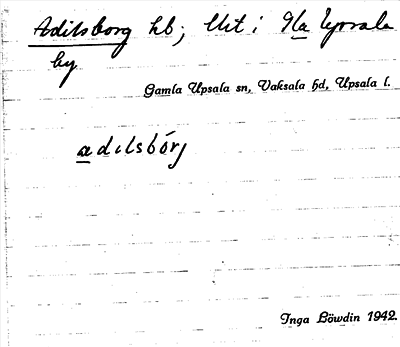 Adilsborg hb; Mt i Gla Upsala
by
Gamla Upsala sn, Vaksala hd, Upsala l.
adilsbórj
Inga Löwdin 1942.